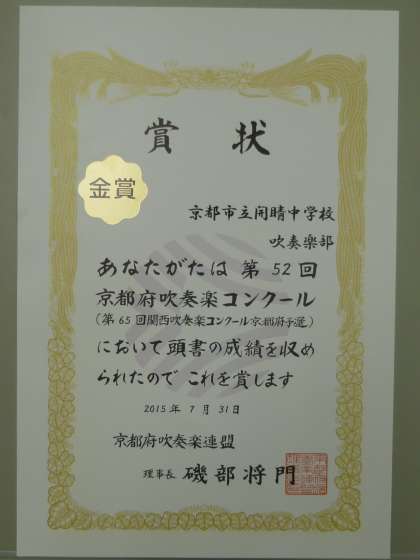 賞状
金賞
京都市立開睛中学校
吹奏楽部
あなたがたは 第52回
京都府吹奏楽コンクール
(第65回関西吹奏楽コンクール京都府予選)
において頭書の成績を収め
られたので これを賞します
2015年 7月 31日
京都府吹奏楽連盟
理事長 磯部将門